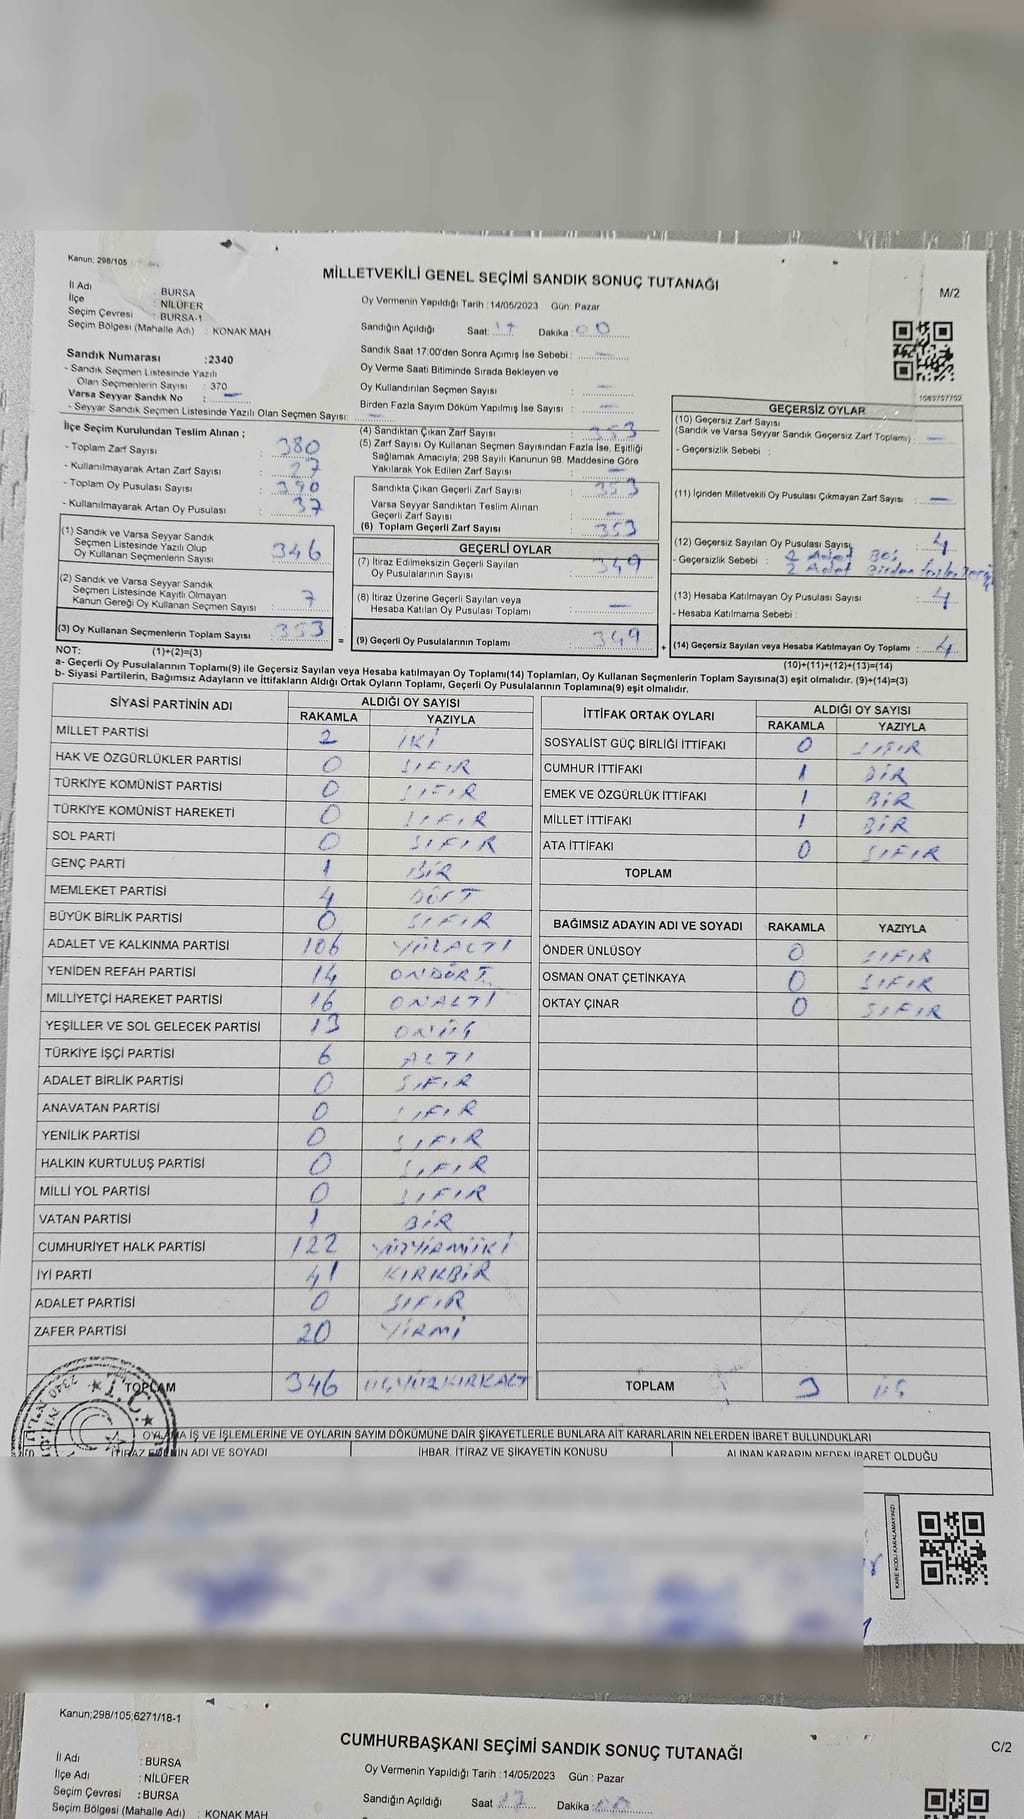 Kanun; 298/105
MİLLETVEKİLİ GENEL SEÇİMİ SANDIK SONUÇ TUTANAĞI
M/2
İl Adı : BURSA
İlçe : NİLÜFER
Seçim Çevresi : BURSA-1
Seçim Bölgesi (Mahalle Adı) : KONAK MAH
Oy Vermenin Yapıldığı Tarih :14/05/2023 Gün: Pazar
Sandığın Açıldığı Saat: 17 Dakika : 00
Sandık Saat 17:00'den Sonra Açımış İse Sebebi : —
Oy Verme Saati Bitiminde Sırada Bekleyen ve
Oy Kullandırılan Seçmen Sayısı : —
Birden Fazla Sayım Döküm Yapılmış İse Sayısı : —
Sandık Numarası :2340
- Sandık Seçmen Listesinde Yazılı
Olan Seçmenlerin Sayısı : 370
Varsa Seyyar Sandık No : —
- Seyyar Sandık Seçmen Listesinde Yazılı Olan Seçmen Sayısı: —
İlçe Seçim Kurulundan Teslim Alınan ;
- Toplam Zarf Sayısı : 380
- Kullanılmayarak Artan Zarf Sayısı : 27
- Toplam Oy Pusulası Sayısı : 390
- Kullanılmayarak Artan Oy Pusulası : 37
(1) Sandık ve Varsa Seyyar Sandık
Seçmen Listesinde Yazılı Olup
Oy Kullanan Seçmenlerin Sayısı : 346
(2) Sandık ve Varsa Seyyar Sandık
Seçmen Listesinde Kayıtlı Olmayan
Kanun Gereği Oy Kullanan Seçmen Sayısı : 7
(3) Oy Kullanan Seçmenlerin Toplam Sayısı : 353
(4) Sandıktan Çıkan Zarf Sayısı : 353
(5) Zarf Sayısı Oy Kullanan Seçmen Sayısından Fazla İse, Eşitliği
Sağlamak Amacıyla; 298 Sayılı Kanunun 98. Maddesine Göre
Yakılarak Yok Edilen Zarf Sayısı : —
Sandıkta Çıkan Geçerli Zarf Sayısı : 353
Varsa Seyyar Sandıktan Teslim Alınan
Geçerli Zarf Sayısı : —
(6) Toplam Geçerli Zarf Sayısı : 353
GEÇERLİ OYLAR
(7) İtiraz Edilmeksizin Geçerli Sayılan
Oy Pusulalarının Sayısı : 349
(8) İtiraz Üzerine Geçerli Sayılan veya
Hesaba Katılan Oy Pusulası Toplamı : —
= (9) Geçerli Oy Pusulalarının Toplamı : 349
1563757752
GEÇERSİZ OYLAR
(10) Geçersiz Zarf Sayısı
(Sandık ve Varsa Seyyar Sandık Geçersiz Zarf Toplamı) : —
- Geçersizlik Sebebi :
(11) İçinden Milletvekili Oy Pusulası Çıkmayan Zarf Sayısı : —
(12) Geçersiz Sayılan Oy Pusulası Sayısı : 4
- Geçersizlik Sebebi : 2 Adet Boş
2 Adet Birden fazla
(13) Hesaba Katılmayan Oy Pusulası Sayısı : 4
- Hesaba Katılmama Sebebi :
+ (14) Geçersiz Sayılan veya Hesaba Katılmayan Oy Toplamı : 4
NOT: (1)+(2)=(3)
(10)+(11)+(12)+(13)=(14)
a- Geçerli Oy Pusulalarının Toplamı(9) ile Geçersiz Sayılan veya Hesaba katılmayan Oy Toplamı(14) Toplamları, Oy Kullanan Seçmenlerin Toplam Sayısına(3) eşit olmalıdır. (9)+(14)=(3)
b- Siyasi Partilerin, Bağımsız Adayların ve İttifakların Aldığı Ortak Oyların Toplamı, Geçerli Oy Pusulalarının Toplamına(9) eşit olmalıdır.
SİYASİ PARTİNİN ADI ALDIĞI OY SAYISI
RAKAMLA YAZIYLA
MİLLET PARTİSİ 2 İKİ
HAK VE ÖZGÜRLÜKLER PARTİSİ 0 SIFIR
TÜRKİYE KOMÜNİST PARTİSİ 0 SIFIR
TÜRKİYE KOMÜNİST HAREKETİ 0 SIFIR
SOL PARTİ 0 SIFIR
GENÇ PARTİ 1 BİR
MEMLEKET PARTİSİ 4 DÖRT
BÜYÜK BİRLİK PARTİSİ 0 SIFIR
ADALET VE KALKINMA PARTİSİ 106 YÜZALTI
YENİDEN REFAH PARTİSİ 14 ONDÖRT
MİLLİYETÇİ HAREKET PARTİSİ 16 ONALTI
YEŞİLLER VE SOL GELECEK PARTİSİ 13 ONÜÇ
TÜRKİYE İŞÇİ PARTİSİ 6 ALTI
ADALET BİRLİK PARTİSİ 0 SIFIR
ANAVATAN PARTİSİ 0 SIFIR
YENİLİK PARTİSİ 0 SIFIR
HALKIN KURTULUŞ PARTİSİ 0 SIFIR
MİLLİ YOL PARTİSİ 0 SIFIR
VATAN PARTİSİ 1 BİR
CUMHURİYET HALK PARTİSİ 122 YÜZYİRMİİKİ
İYİ PARTİ 41 KIRKBİR
ADALET PARTİSİ 0 SIFIR
ZAFER PARTİSİ 20 YİRMİ
TOPLAM 346 ÜÇYÜZKIRKALT
İTTİFAK ORTAK OYLARI ALDIĞI OY SAYISI
RAKAMLA YAZIYLA
SOSYALİST GÜÇ BİRLİĞİ İTTİFAKI 0 SIFIR
CUMHUR İTTİFAKI 1 BİR
EMEK VE ÖZGÜRLÜK İTTİFAKI 1 BİR
MİLLET İTTİFAKI 1 BİR
ATA İTTİFAKI 0 SIFIR
TOPLAM
BAĞIMSIZ ADAYIN ADI VE SOYADI RAKAMLA YAZIYLA
ÖNDER ÜNLÜSOY 0 SIFIR
OSMAN ONAT ÇETİNKAYA 0 SIFIR
OKTAY ÇINAR 0 SIFIR
TOPLAM 3 ÜÇ
T.C.
2340
OYLAMA İŞ VE İŞLEMLERİNE VE OYLARIN SAYIM DÖKÜMÜNE DAİR ŞİKAYETLERLE BUNLARA AİT KARARLARIN NELERDEN İBARET BULUNDUKLARI
İTİRAZ EDENİN ADI VE SOYADI İHBAR, İTİRAZ VE ŞİKAYETİN KONUSU ALINAN KARARIN NEDEN İBARET OLDUĞU
KARE KODU KARALAMAYINIZ!
Kanun;298/105;6271/18-1
CUMHURBAŞKANI SEÇİMİ SANDIK SONUÇ TUTANAĞI
C/2
İl Adı : BURSA
İlçe Adı : NİLÜFER
Seçim Çevresi : BURSA
Seçim Bölgesi (Mahalle Adı) : KONAK MAH
Oy Vermenin Yapıldığı Tarih :14/05/2023 Gün : Pazar
Sandığın Açıldığı Saat :17 Dakika :00